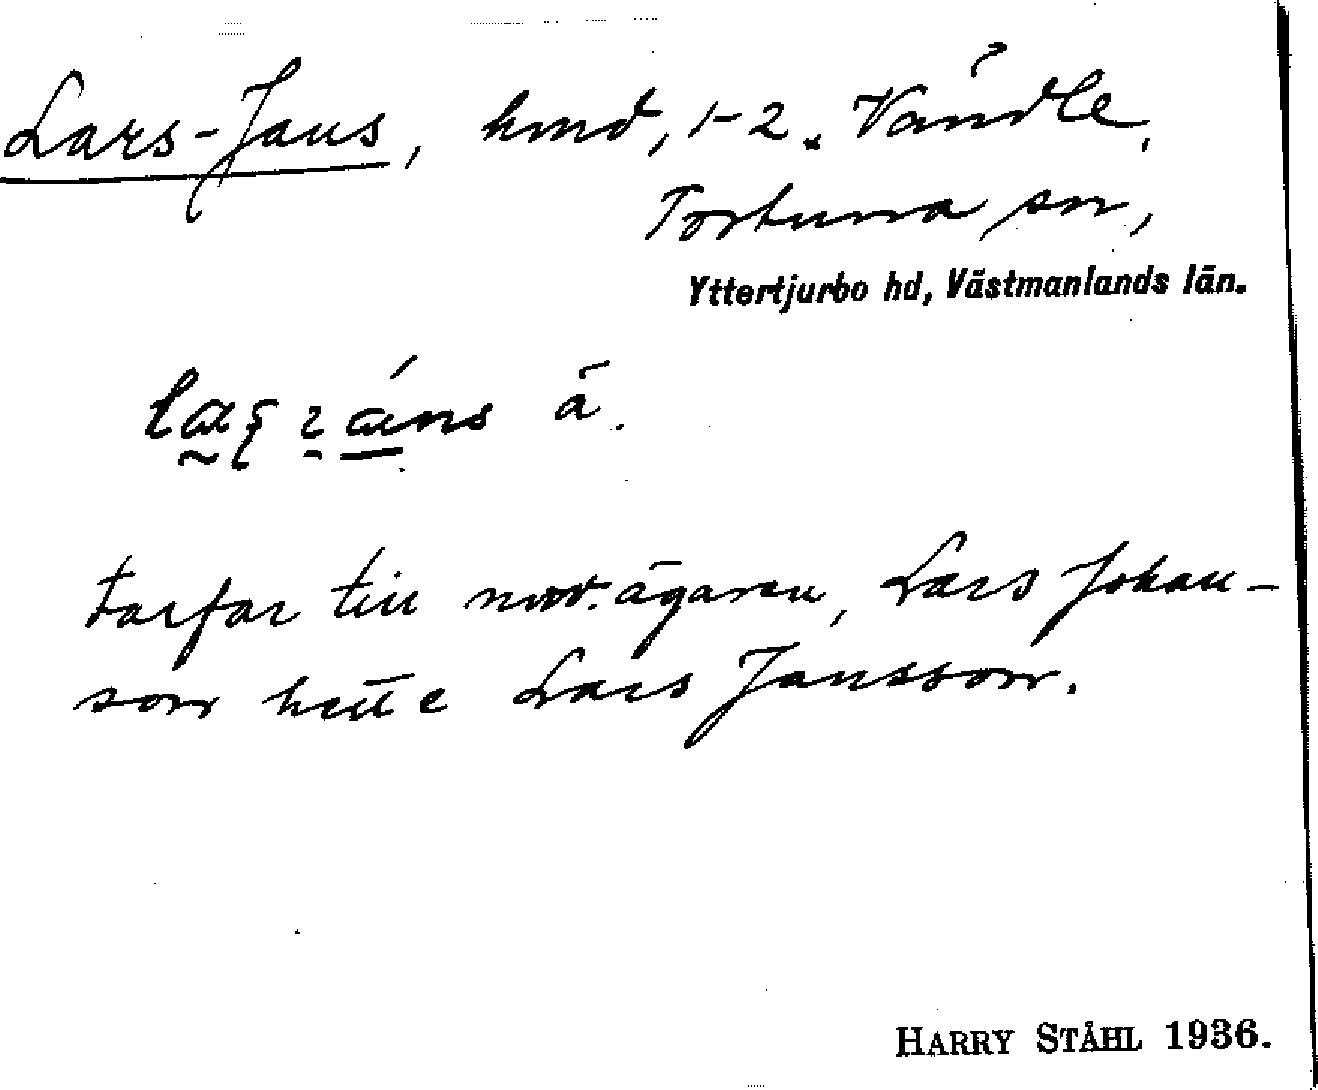 Lars-Jans, hmd, 1-2. Vändle,
Tortuna sn,
Yttertjurbo hd, Västmanlands län.
ä.
Farfar till nuv. ägaren, Lars Johan-
son hette Lars Jansson.
HARRY STÅHL 1936.